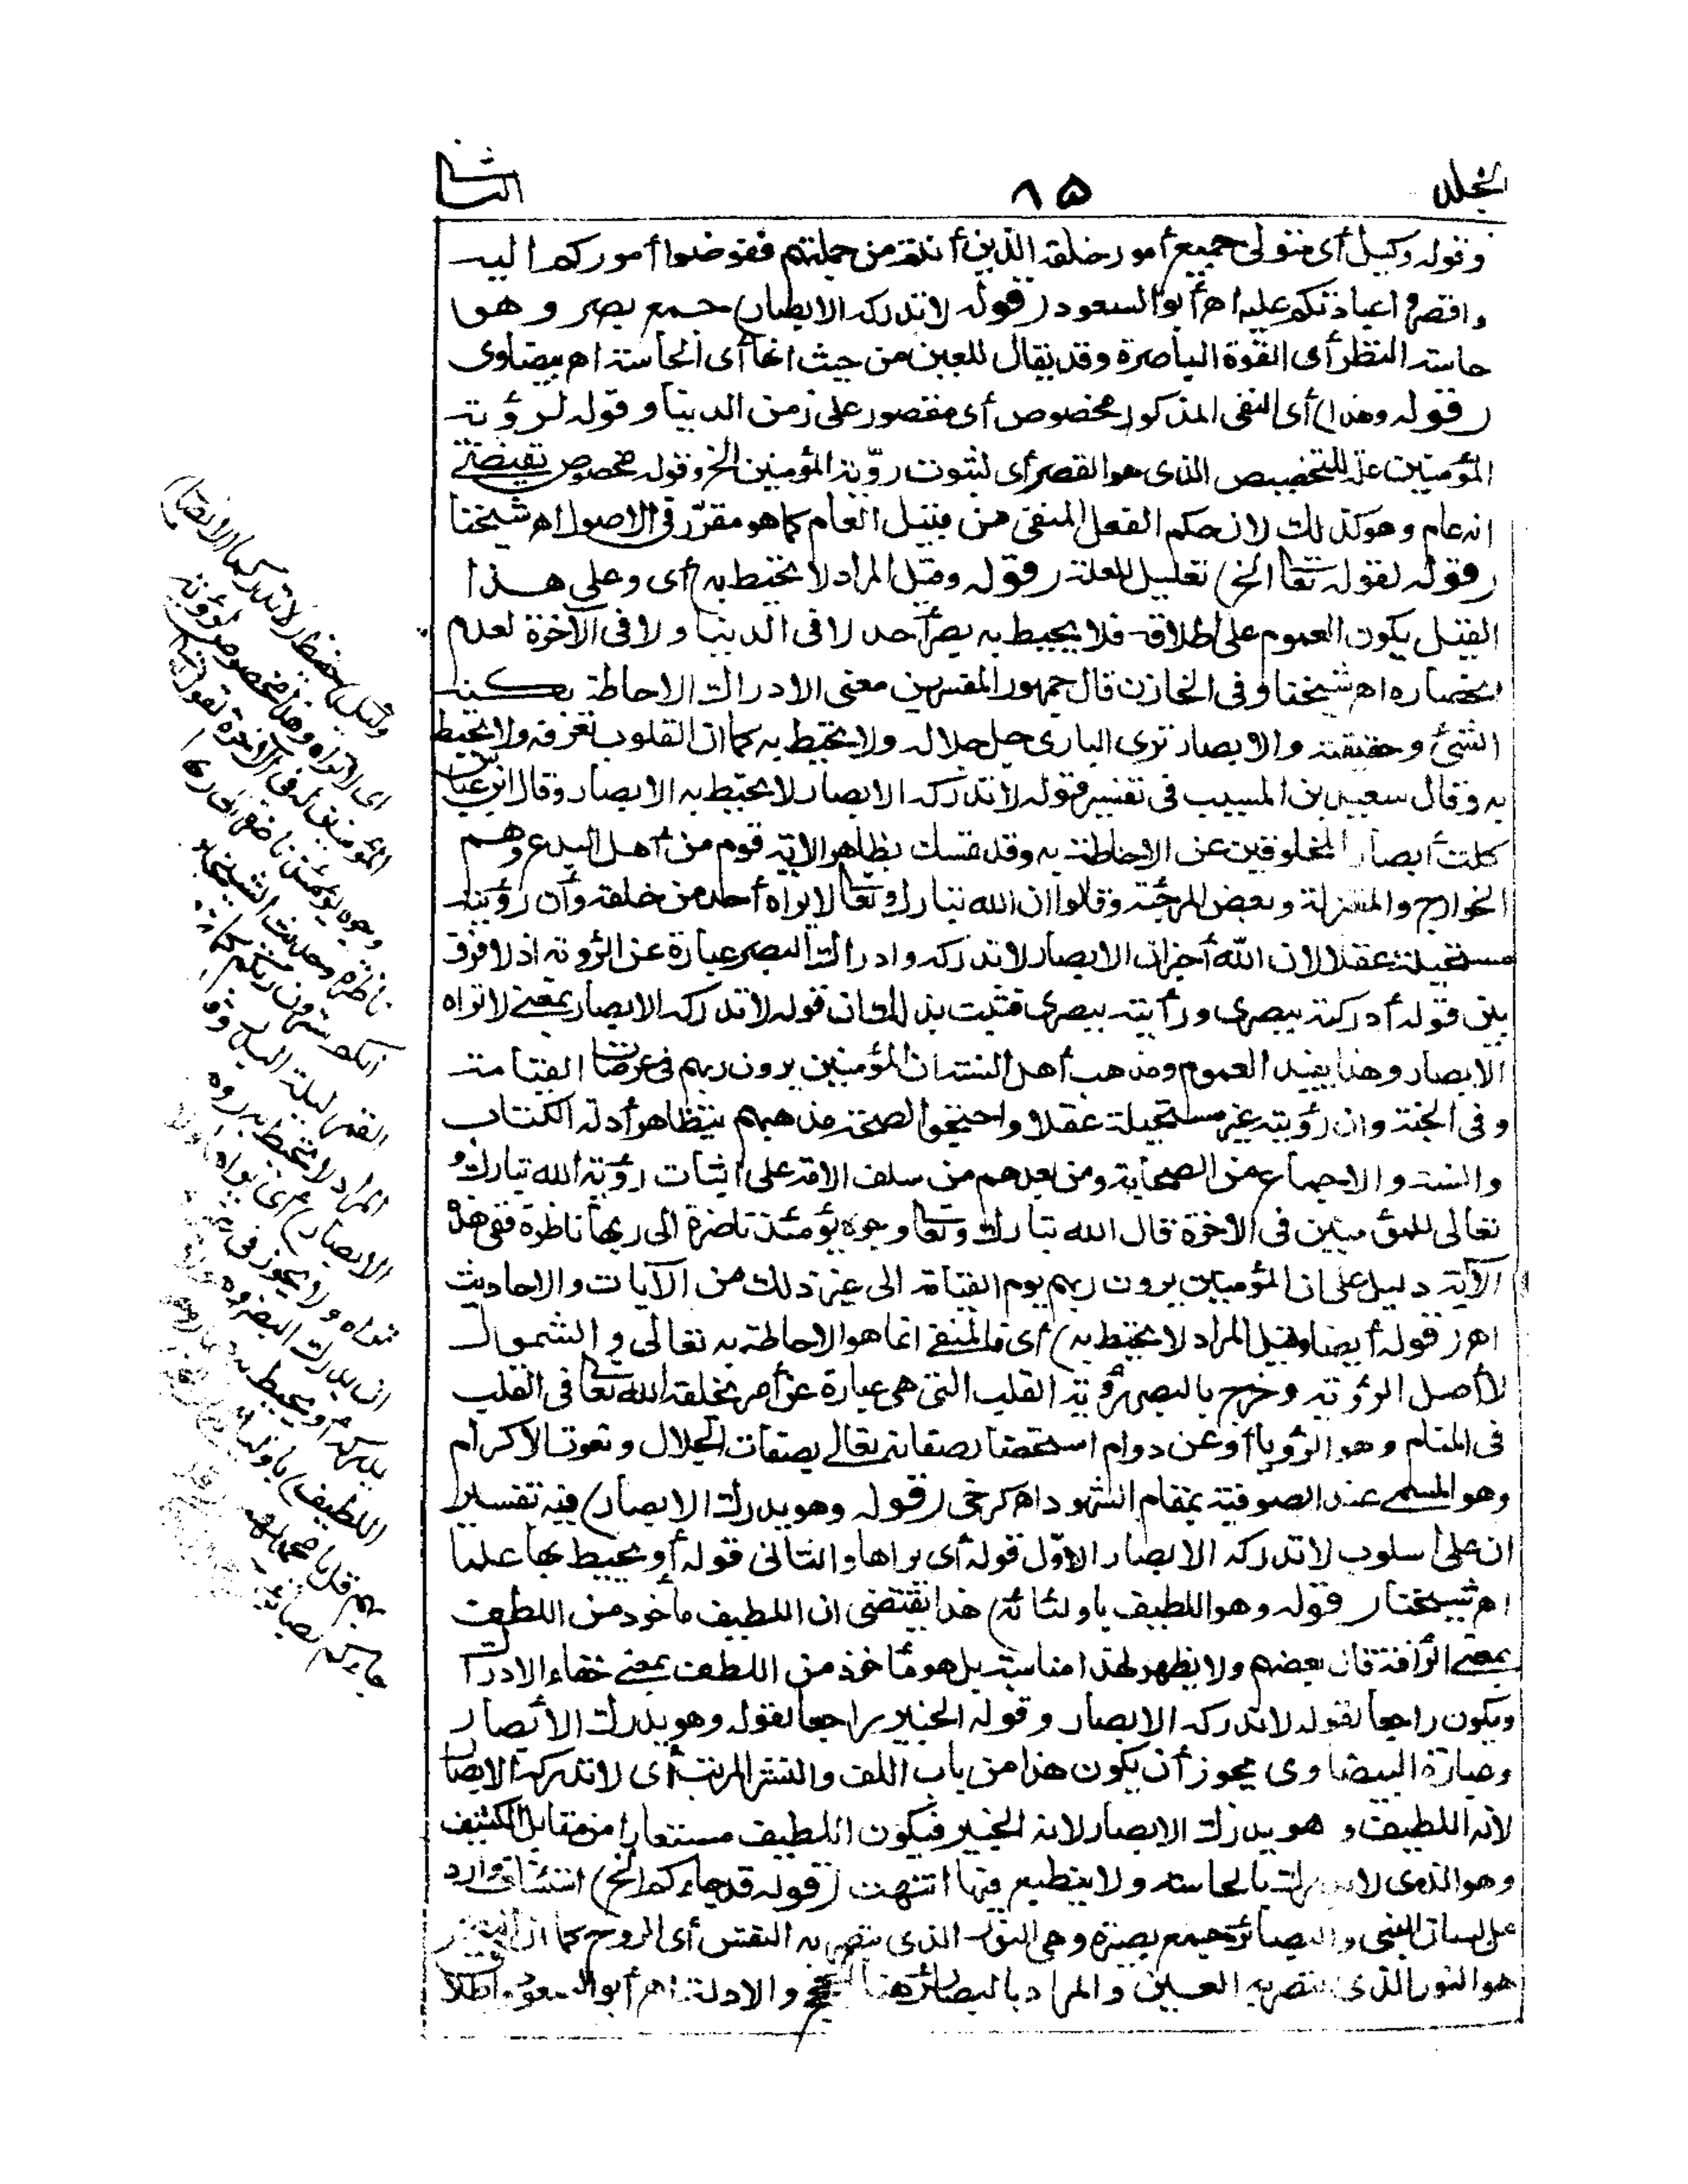 الجلد ٨٥ الثانى
وقوله وكيل أى متولى جميع أمور خلقه الذين أنتم من جملتهم ففوضوا أموركم اليه
واقصروا عبادتكم عليه اه أبو السعود (قوله لا تدركه الابصار) جمع بصر وهو
حاسة النظر أى القوة الباصرة وقد يقال للعين من حيث انها أى الحاسة اه بيضاوى
(قوله وهذا) أى النفى المذكور مخصوص أى مقصور على زمن الدنيا وقوله لرؤية
المؤمنين علة للتخصيص الذى هو القصر أى لثبوت رؤية المؤمنين الخ وقوله مخصوص يقتضى
انه عام وهو كذلك لان حكم الفعل المنفى من قبيل العام كما هو مقرر فى الاصول اه شيخنا
(قوله لقوله تعالى الخ) تعليل للعلة (قوله وقيل المراد لا تحيط به) أى وعلى هذا
القيل يكون العموم على اطلاقه فلا يحيط به بصر أحد لا فى الدنيا ولا فى الآخرة لعدم
انحصاره اه شيخنا وفى الخازن قال جمهور المفسرين معنى الادراك الاحاطة بكنه
الشئ وحقيقته والابصار ترى البارى جل جلاله ولا تحيط به كما ان القلوب تعرفه ولا تحيط
به وقال سعيد بن المسيب فى تفسير قوله لا تدركه الابصار لا تحيط به الابصار وقال ابن عباس
كلت أبصار المخلوقين عن الاحاطة به وقد تمسك بظاهر الاية قوم من أهل البدع وهم
الخوارج والمعتزلة وبعض المرجئة وقالوا ان الله تبارك وتعالى لا يراه أحد من خلقه وأن رؤيته
مستحيلة عقلا لان الله أخبر ان الابصار لا تدركه وادراك البصر عبارة عن الرؤية اذ لا فرق
بين قوله أدركته ببصرى ورأيته ببصرى فثبت بذلك ان قوله لا تدركه الابصار بمعنى لا تراه
الابصار وهذا يفيد العموم ومذهب أهل السنة ان المؤمنين يرون ربهم فى عرصات القيامة
وفى الجنة وان رؤيته غير مستحيلة عقلا واحتجوا لصحة مذهبهم بتظاهر أدلة الكتاب
والسنة والاجماع من الصحابة ومن بعدهم من سلف الامة على اثبات رؤية الله تبارك و
تعالى للمؤمنين فى الآخرة قال الله تبارك وتعالى وجوه يومئذ ناضرة الى ربها ناظرة ففى هذه
الآية دليل على ان المؤمنين يرون ربهم يوم القيامة الى غير ذلك من الآيات والاحاديث
اه (قوله أيضا وقيل المراد لا تحيط به) أى فالمنفى انما هو الاحاطة به تعالى والشمول
لا أصل الرؤية وخرج بالبصر رؤية القلب التى هى عبارة عن أمر يخلقه الله تعالى فى القلب
فى المنام وهو الرؤيا أو عن دوام استحضار صفاته تعالى بصفات الجلال ونعوت الاكرام
وهو المسمى عند الصوفية بمقام الشهود اه كرخى (قوله وهو يدرك الابصار) فيه تفسير
ان على اسلوب لا تدركه الابصار الاول قوله أى يراها والثانى قوله أو يحيط بها علما
اه شيخنا (قوله وهو اللطيف باوليائه) هذا يقتضى ان اللطيف مأخوذ من اللطف
بمعنى الرأفة قال بعضهم ولا يظهر لهذا مناسبة بل هو مأخوذ من اللطف بمعنى خفاء الادراك
ويكون راجعا لقوله لا تدركه الابصار وقوله الخبير راجعا لقوله وهو يدرك الأبصار
وعبارة البيضاوى يجوز أن يكون هذا من باب اللف والنشر المرتب أى لا تدركه الابصار
لانه اللطيف وهو يدرك الابصار لانه الخبير فيكون اللطيف مستعارا من مقابل الكثيف
وهو الذى لا يدرك بالحاسة ولا ينطبع فيها انتهت (قوله قد جاءكم الخ) استئناف وارد
على لسان النبى والبصائر جمع بصيرة وهى النور الذى تبصر به النفس أى الروح كما ان البصر
هو النور الذى تبصر به العين والمراد بالبصائر هنا الحجج والادلة اه أبو السعود واطلاق
وكيل) حفيظ (لا تدركه الابصار)
اى لا تراه وهذا مخصوص لرؤية
المؤمنين له فى الآخرة لقوله تعالى
وجوه يومئذ ناضرة الى ربها
ناظرة وحديث الشيخين
انكم سترون ربكم كما ترون
القمر ليلة البدر وقيل
المراد لا تحيط به (وهو يدرك
الابصار) أى يراها ولا
تراه ولا يجوز فى غيره
ان يدرك البصر وهو لا
يدركه أو يحيط به علما (وهو
اللطيف) باوليائه
بهم قل يا محمد لهم
جاءكم بصائر